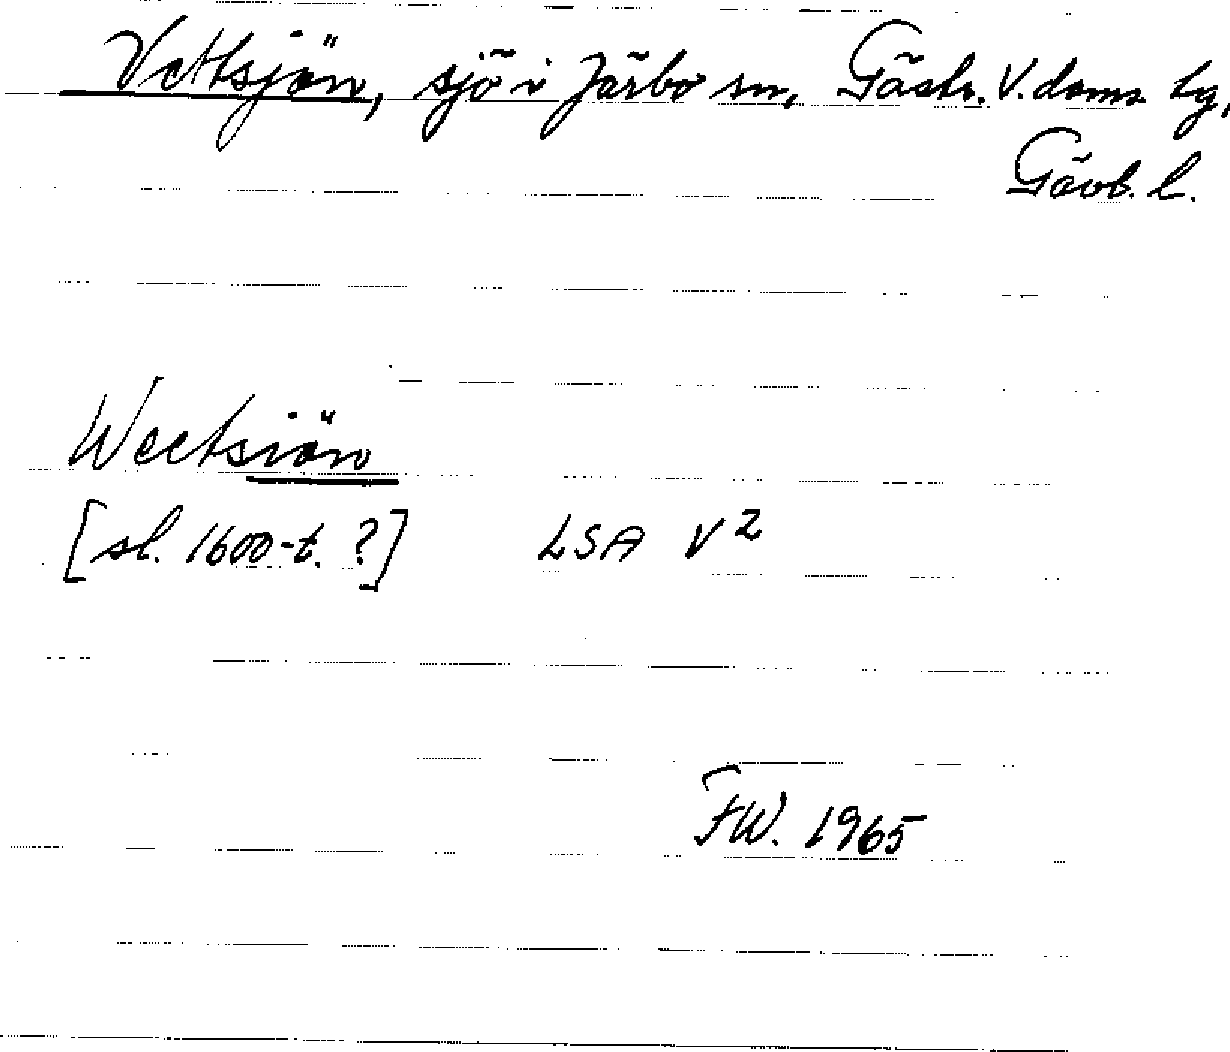 Vettsjön, sjö i Järbo sn, Gästr. V. doms. tg,
Gävb. l.
Weetsiön
[sl. 1600-t. ?] LSA V²
FW. 1965